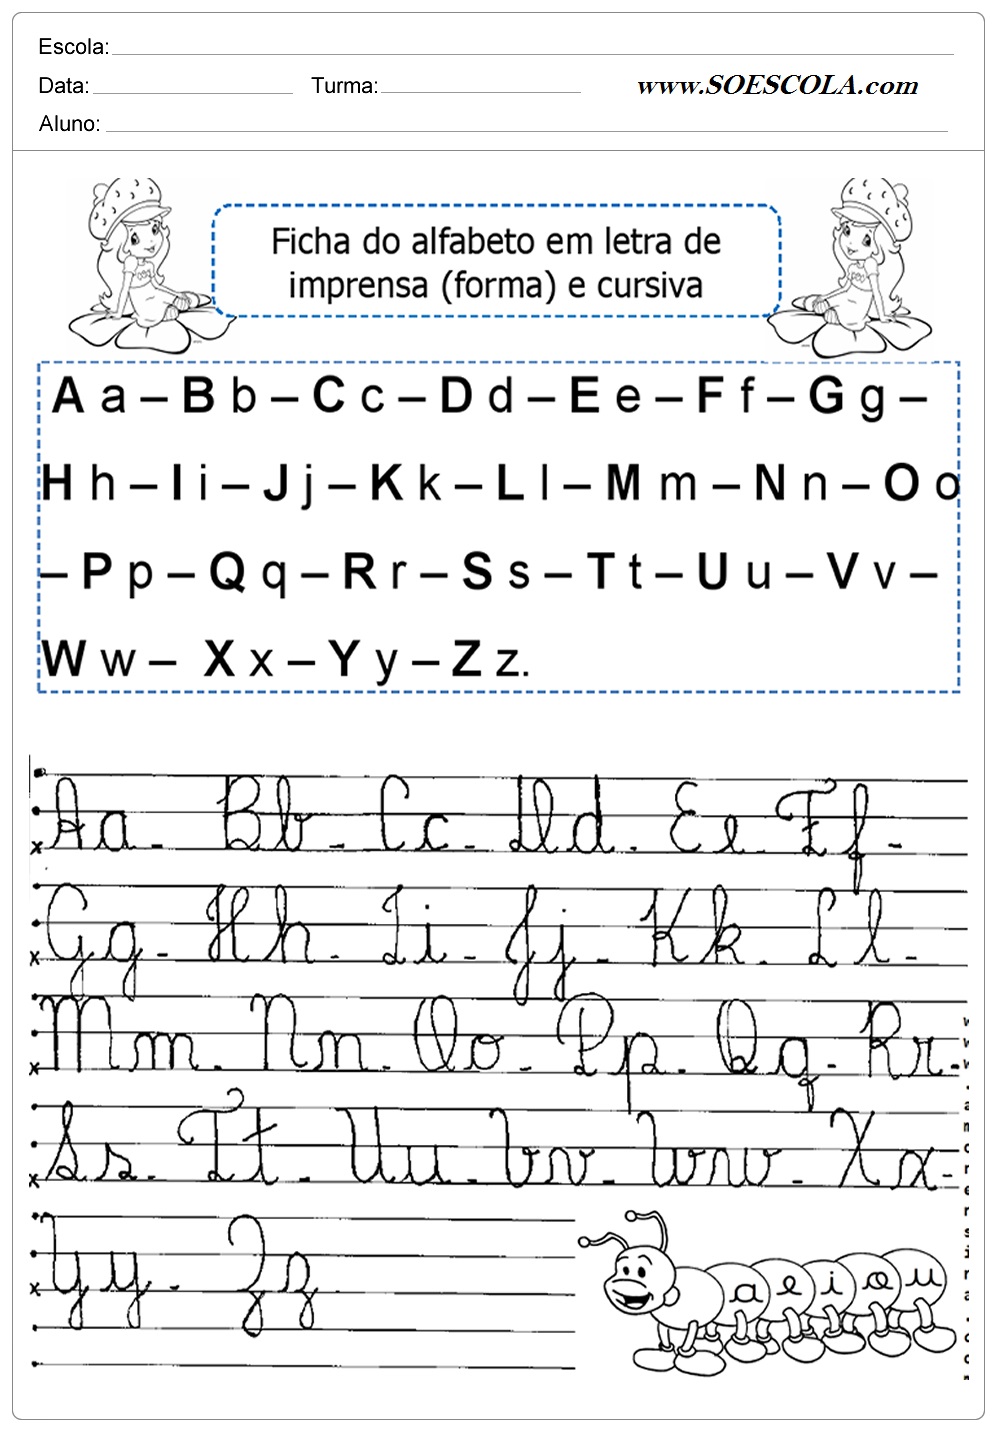 Escola:
Data: Turma: www.SOESCOLA.com
Aluno:
Ficha do alfabeto em letra de
imprensa (forma) e cursiva
A a – B b – C c – D d – E e – F f – G g –
H h – I i – J j – K k – L l – M m – N n – O o
– P p – Q q – R r – S s – T t – U u – V v –
W w – X x – Y y – Z z.
Aa - Bb - Cc - Dd - Ee - Ff -
Gg - Hh - Ii - Jj - Kk - Ll -
Mm - Nn - Oo - Pp - Qq - Rr -
Ss - Tt - Uu - Vv - Ww - Xx -
Yy - Zz
a e i o u
www.amorensina.com